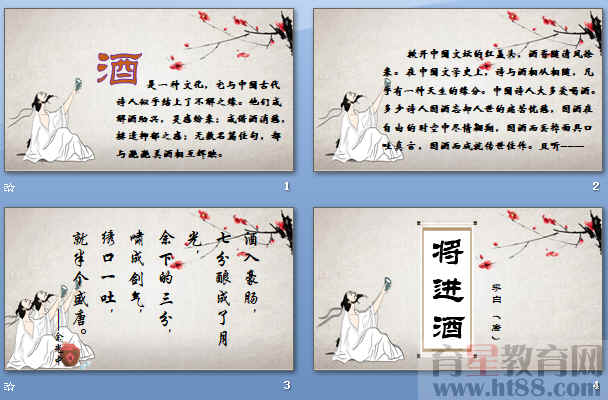 酒
是一种文化，它与中国古代
诗人似乎结上了不解之缘。他们或
解酒助兴，灵感纷来；或借酒消愁，
排遣抑郁之感；无数名篇佳句，都
与滟滟美酒相互辉映。
1
掀开中国文坛的红盖头，酒香随清风徐
来。在中国文学史上，诗与酒相从相随，几
乎有一种天生的缘分。中国诗人大多爱喝酒。
多少诗人因酒忘却人世的痛苦忧愁，因酒在
自由的时空中尽情翱翔，因酒而丢掉面具口
吐真言，因酒而成就传世佳作。且听----
2
酒入豪肠，
七分酿成了月
光，
余下的三分，
啸成剑气，
绣口一吐，
就半个盛唐。
——余光中
3
将进酒
李白（唐）
4
育星教育网
www.ht88.com